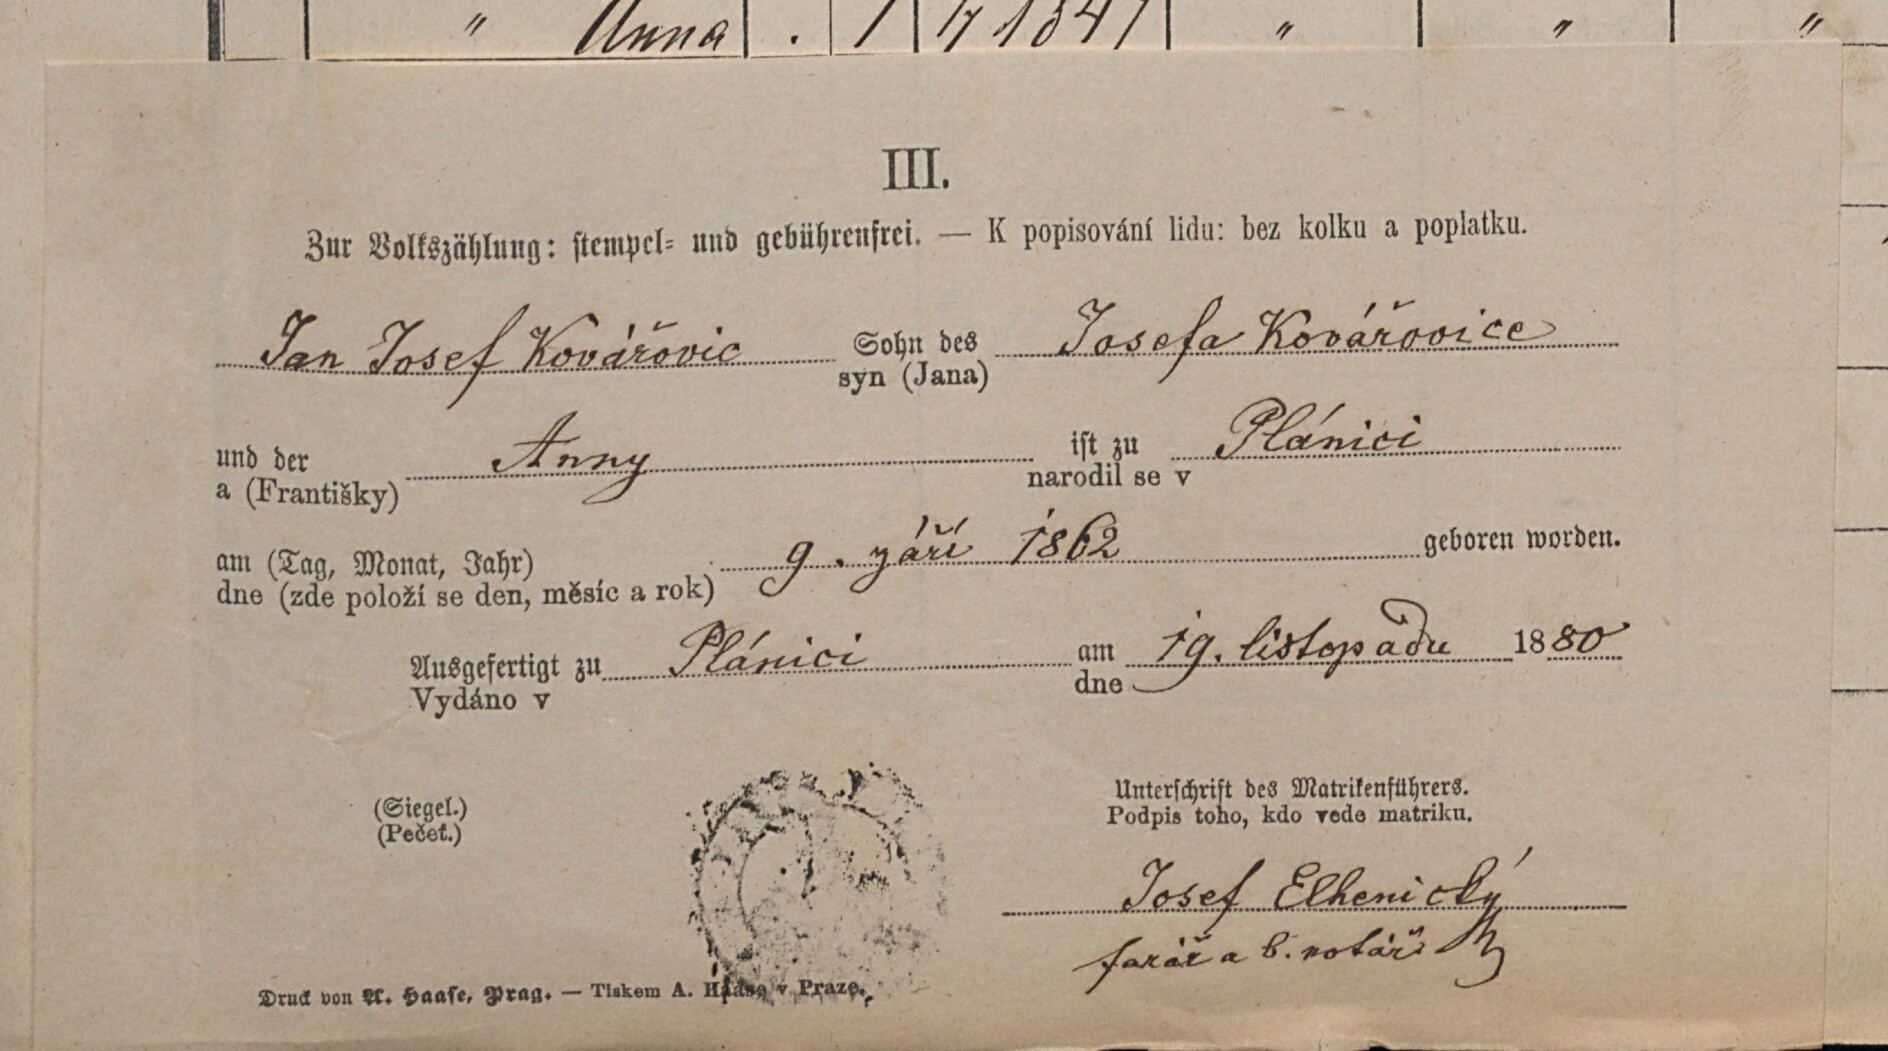 " Anna . 1 17 1847 " " "
III.
Zur Volkszählung: stempel- und gebührenfrei. — K popisování lidu: bez kolku a poplatku.
Jan Josef Kovářovic Sohn des Josefa Kovářovice
syn (Jana)
und der Anny ist zu Plánici
a (Františky) narodil se v
am (Tag, Monat, Jahr) 9. září 1862 geboren worden.
dne (zde položí se den, měsíc a rok)
Ausgefertigt zu Plánici am 19. listopadu 1880
Vydáno v dne
(Siegel.) Unterschrift des Matrikenführers.
(Pečeť.) Podpis toho, kdo vede matriku.
Josef Elhenický
farář a b. notář
Druck von A. Haase, Prag. — Tiskem A. Haase v Praze.